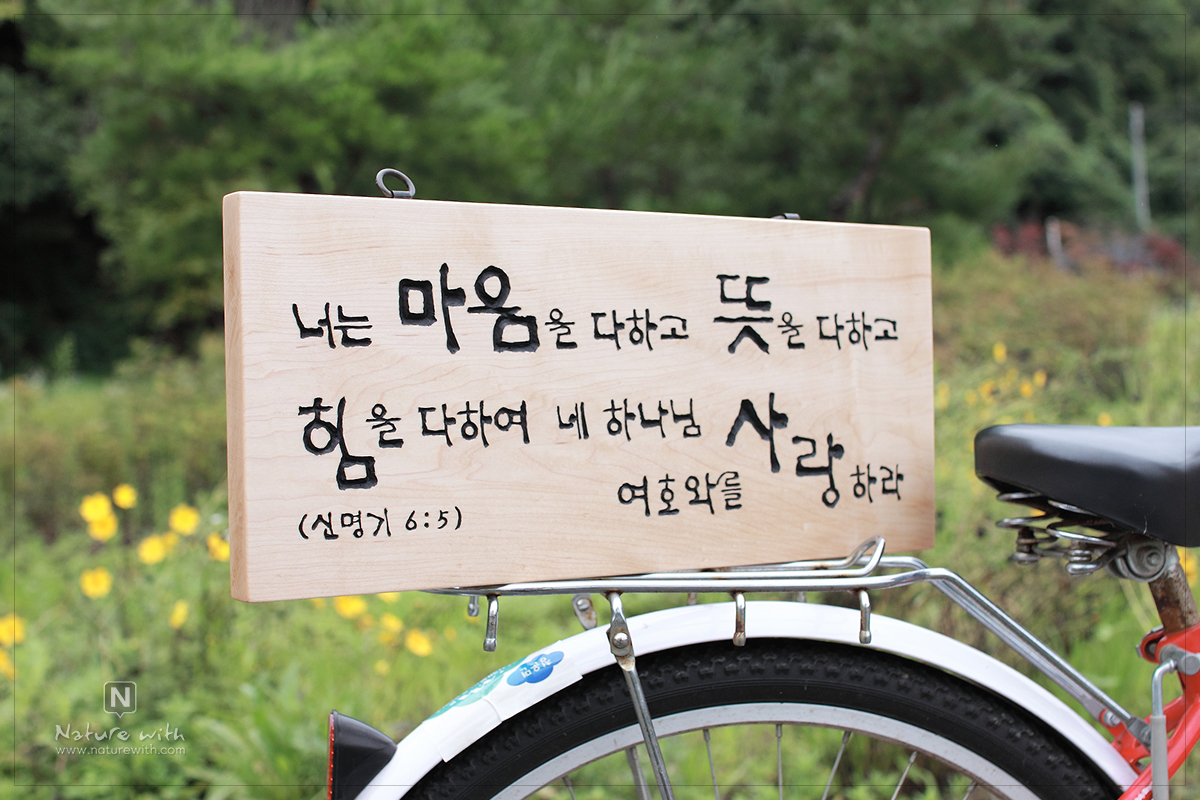 너는 마음을 다하고 뜻을 다하고
힘을 다하여 네 하나님
여호와를 사랑하라
(신명기 6:5)
N
Nature with
www.naturewith.com